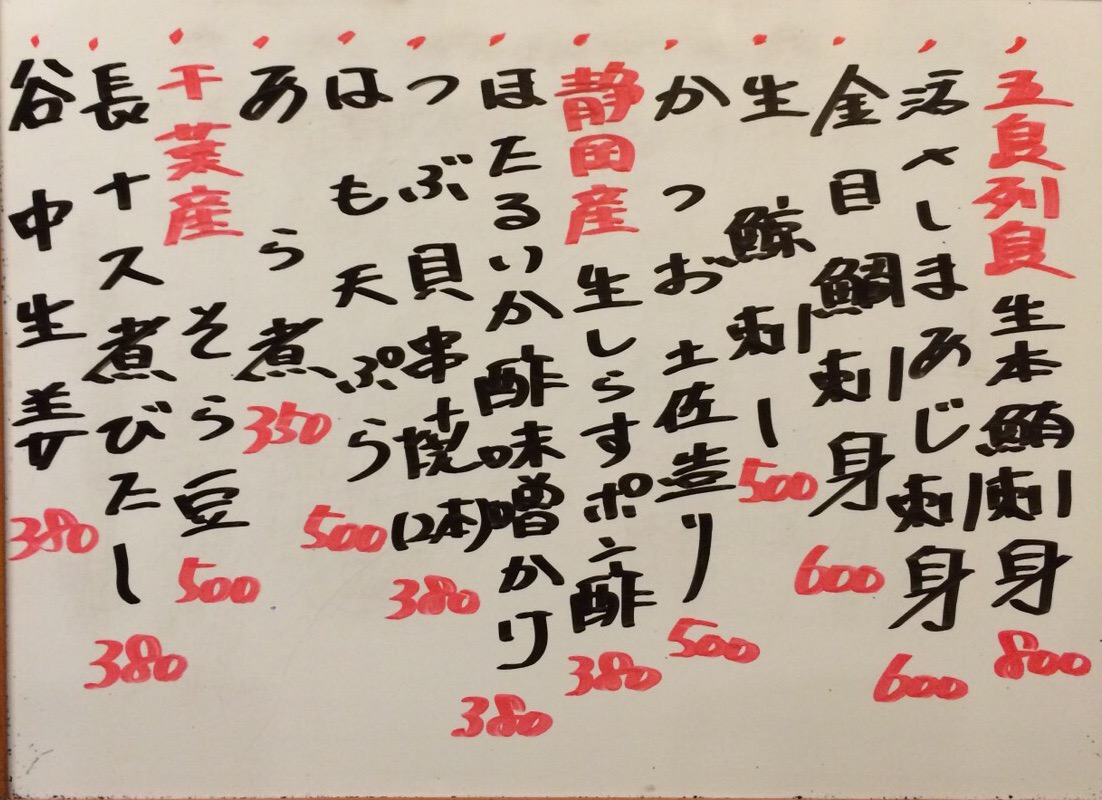 五島列島 生本鮪刺身 800
活〆しまあじ刺身 600
金目鯛刺身 600
生鯨刺し 500
かつお土佐造り 500
静岡産 生しらすポン酢 380
ほたるいか酢味噌かけ 380
つぶ貝串焼(2本) 380
はも天ぷら 500
あら煮 350
千葉産 そら豆 500
長ナス煮びたし 380
谷中生姜 380